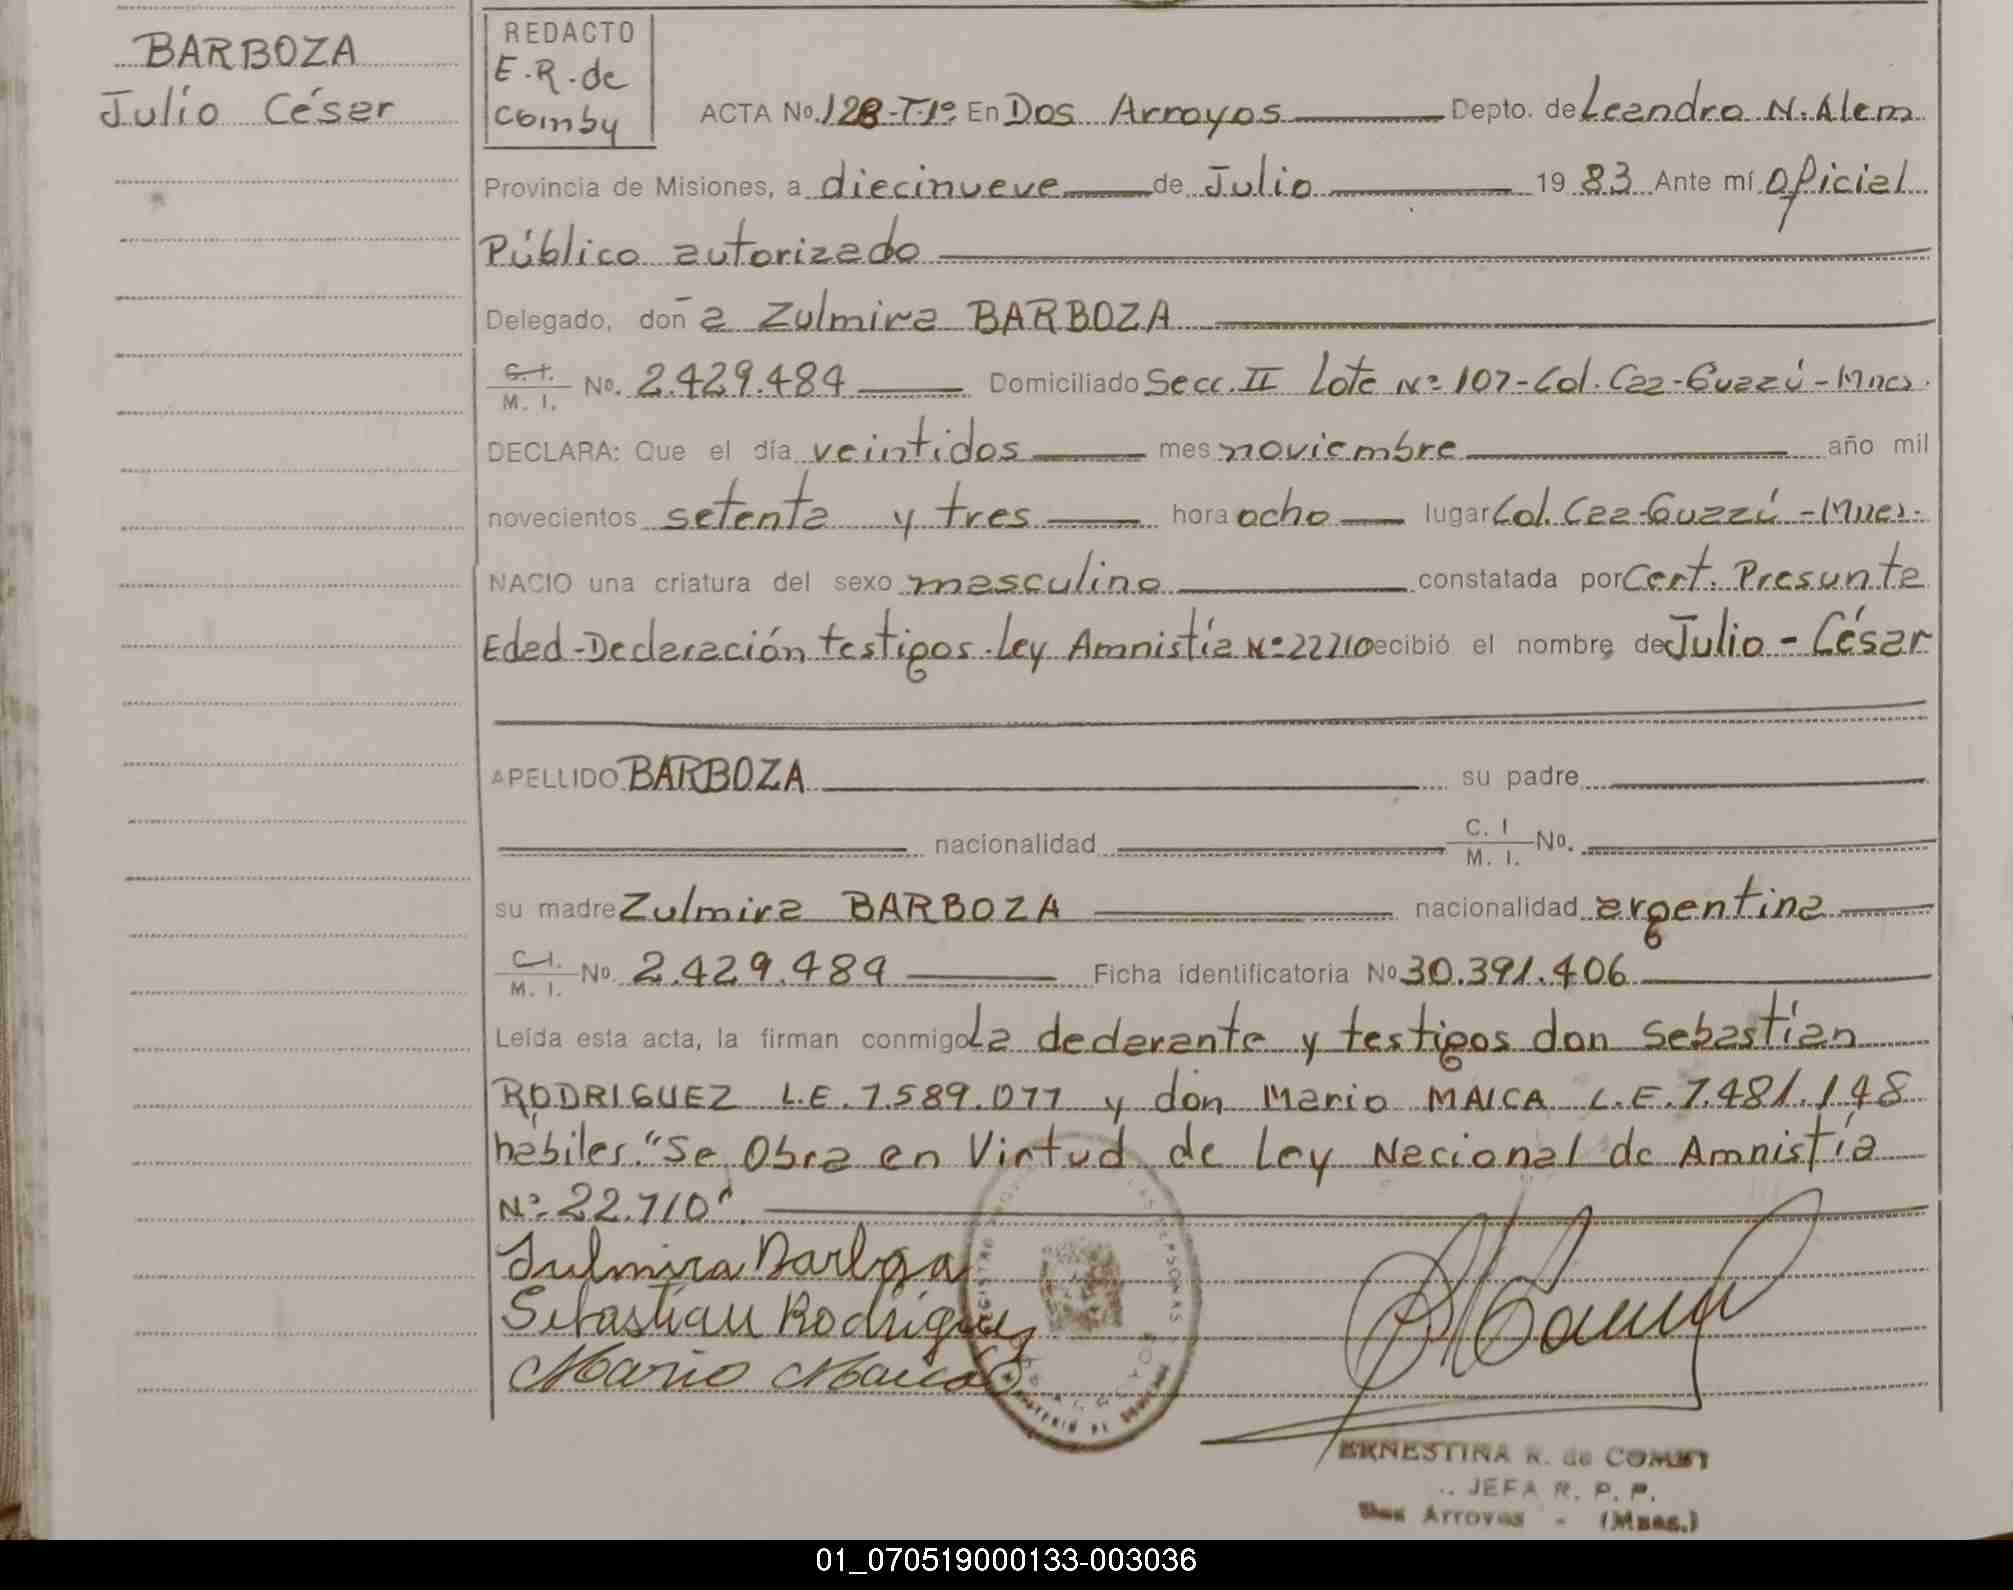 BARBOZA
Julio César
REDACTO
E.R. de
Comby
ACTA No. 128-T.1º En Dos Arroyos Depto. de Leandro N. Alem
Provincia de Misiones, a diecinueve de Julio 1983 Ante mí Oficial
Público autorizado
Delegado, don̄a Zulmira BARBOZA
C. I. M. I. No. 2.429.484 Domiciliado Secc. II Lote Nº 107-Col. Caa-Guazzú-Mnes.
DECLARA: Que el día veintidos mes noviembre año mil
novecientos setenta y tres hora ocho lugar Col. Caa-Guazzú-Mnes.
NACIO una criatura del sexo masculino constatada por Cert. Presunta
Edad-Declaración testigos. Ley Amnistía Nº 22710 recibió el nombre de Julio-César
APELLIDO BARBOZA su padre
nacionalidad C. I M. I. No.
su madre Zulmira BARBOZA nacionalidad argentina
C. I. M. I. No. 2.429.484 Ficha identificatoria No. 30.391.406
Leída esta acta, la firman conmigo La declarante y testigos don Sebastián
RODRIGUEZ L.E. 7.589.077 y don Mario MAICA L.E. 7.481.148
hábiles. "Se Obra en Virtud de Ley Nacional de Amnistía
Nº 22.710".
Sulmira Barboza
Sebastian Rodriguez
Mario Maica
ERNESTINA R. de COMBY
JEFA R. P. P.
Dos Arroyos - (Mnes.)
01_070519000133-003036